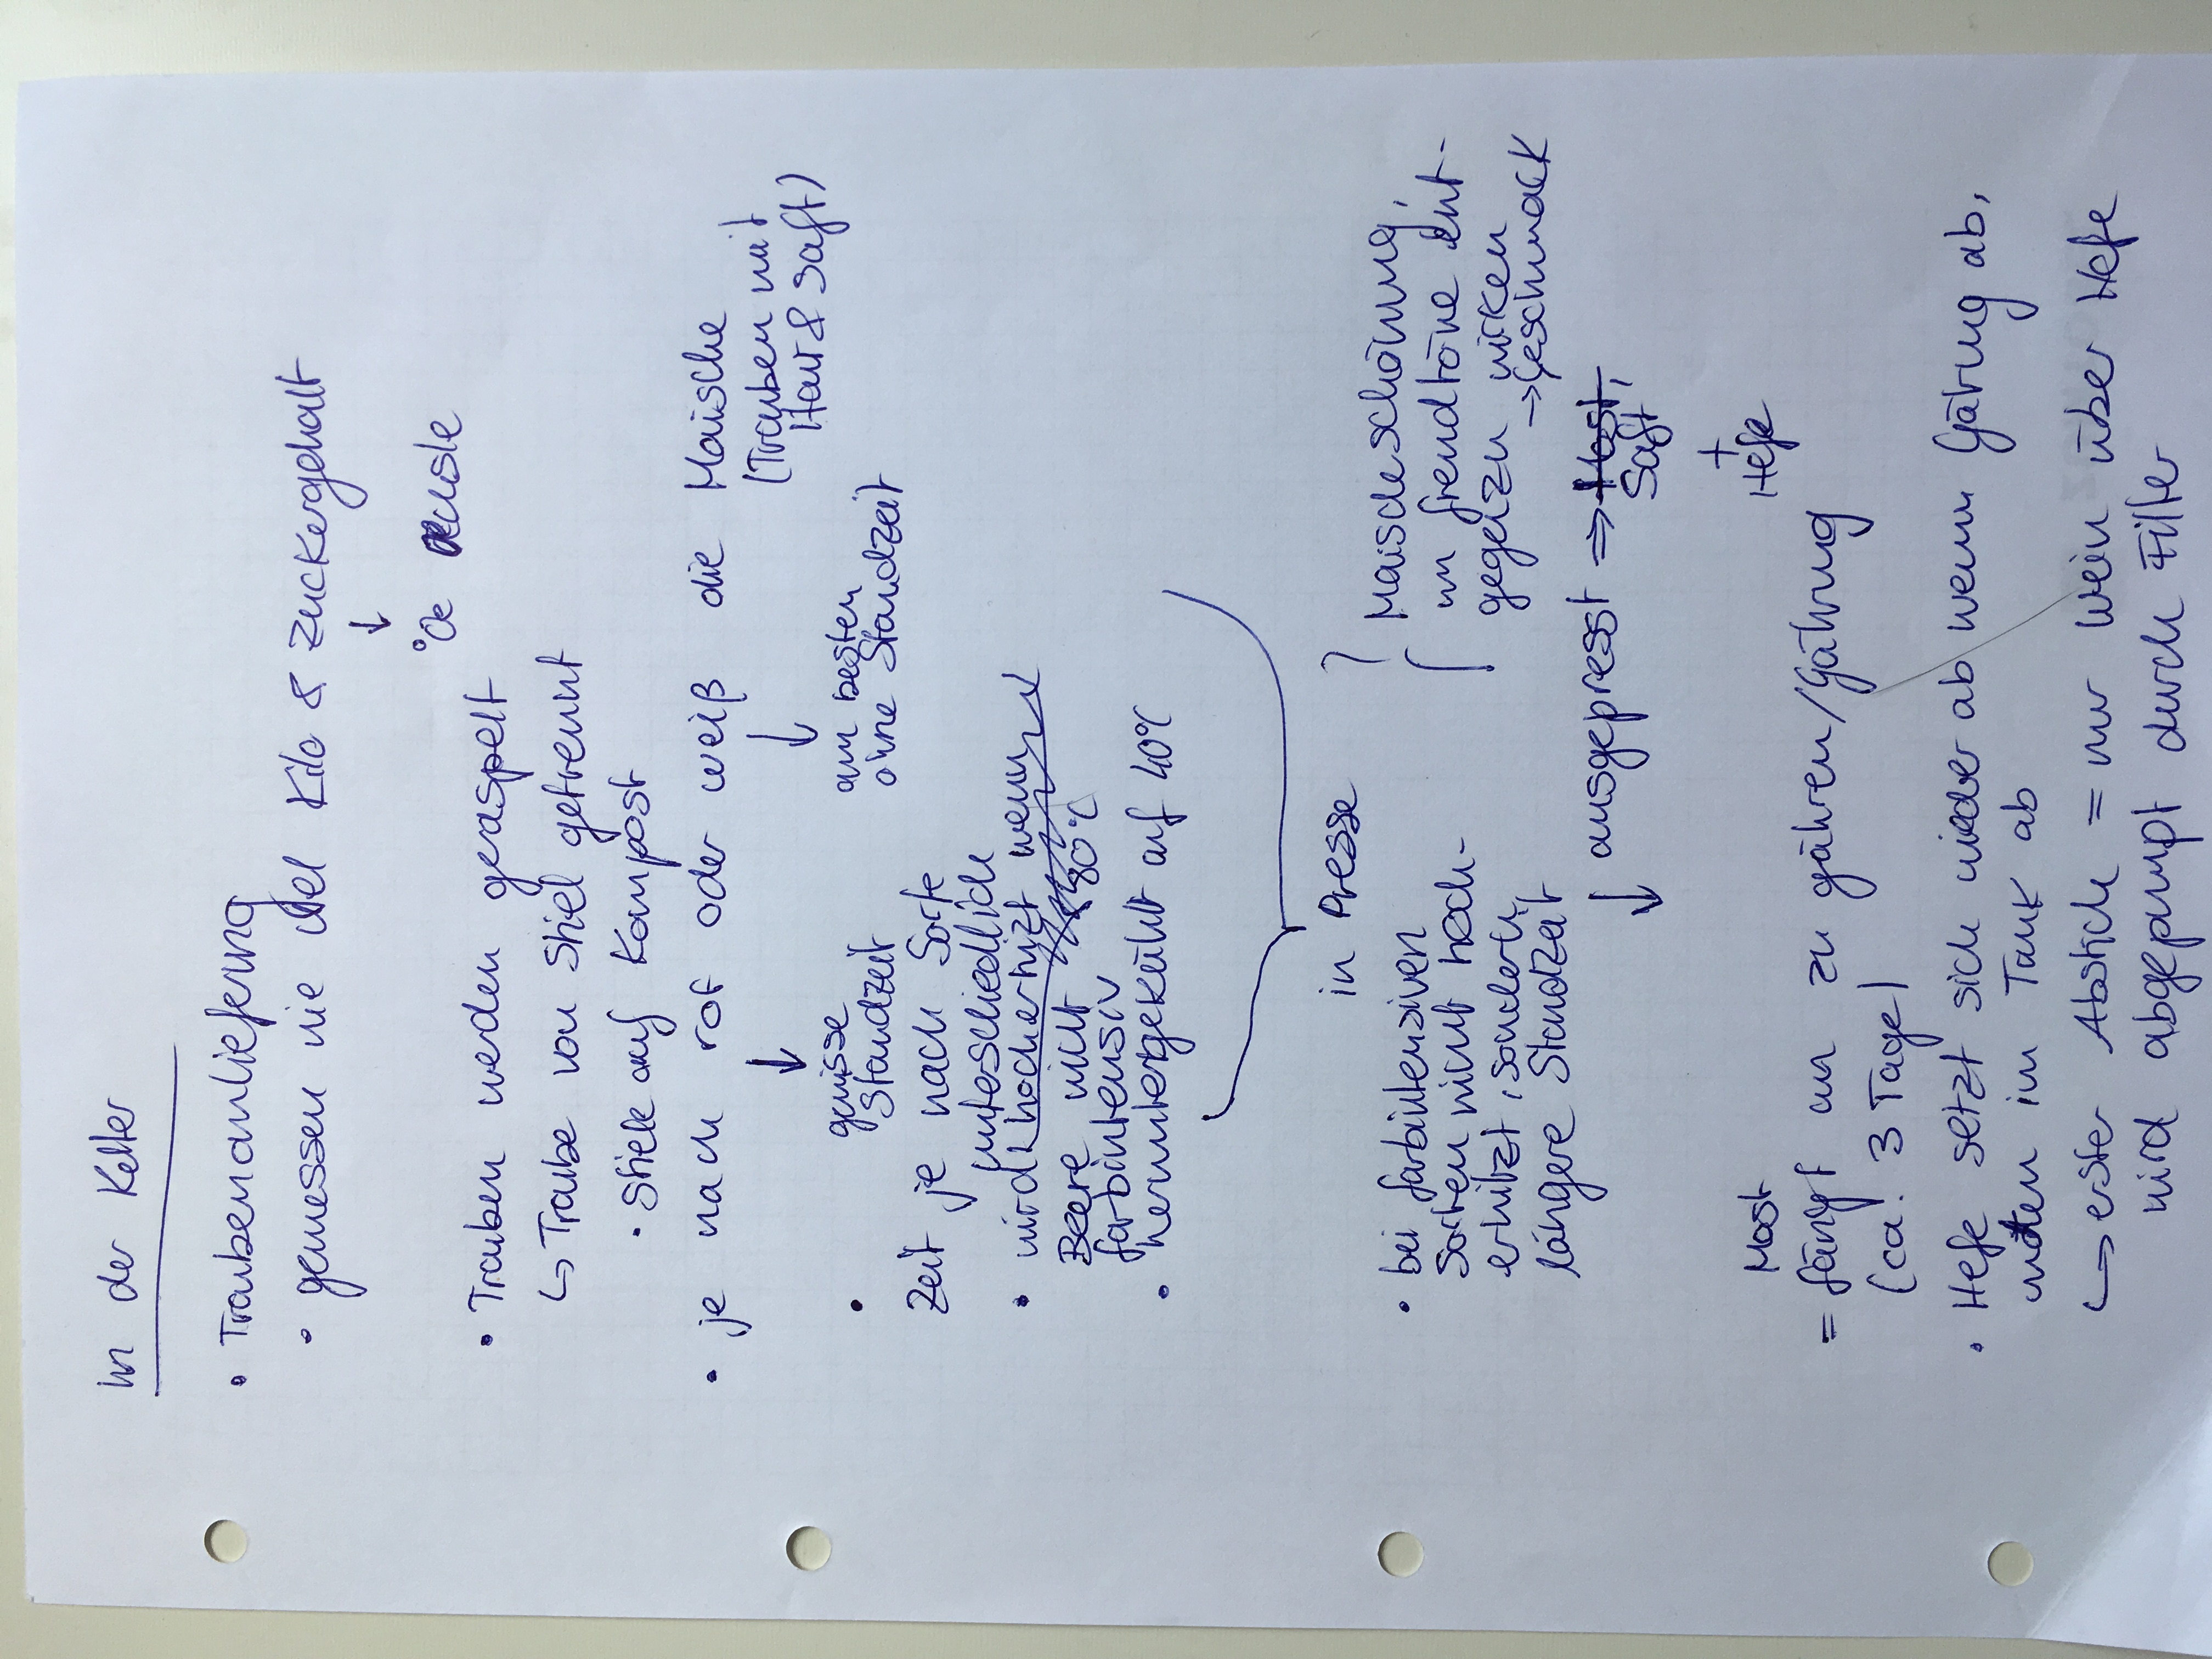 in der Kelter
• Traubenanlieferung
• gemessen wie viel Kilo & Zuckergehalt
↓
°Oe Öchsle
• Trauben werden geraspelt
↳ Traube von Stiel getrennt
• Stiele auf Kompost
• je nach rot oder weiß die Maische
(Trauben mit
Haut & Saft)
↓ ↓
• gewisse am besten
Standzeit ohne Standzeit
Zeit je nach Sorte
unterschiedlich
• wird hocherhizt wenn
Beere nicht 80°C
farbintensiv
• heruntergekühlt auf 40°C
in Presse
• bei farbintensiven
Sorten nicht hoch-
erhitzt, sondern
längere Standzeit
Maischeschönung,
um fremdtöne ent-
gegenzu wirken
→ Geschmack
↓ ausgepresst ⇒ Most,
Saft
+
Hefe
Most
= fängt an zu gähren/Gährung
(ca. 3 Tage)
• Hefe setzt sich wieder ab wenn Gährung ab,
unten im Tank ab
↳ erster Abstich = nur Wein über Hefe
wird abgepumpt durch Filter